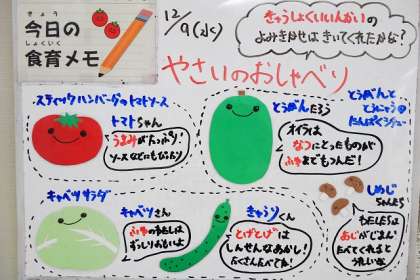 きょう
今日の
しょくいく
食育メモ
12/9(水)
きゅうしょくいいんかいの
よみきかせは きいてくれたかな?
やさいのおしゃべり
スティックハンバーグのトマトソース
トマトちゃん
うまみがたっぷり!
ソースなどにもぴったり
とうがんたろう
オイラは
なつにとったものが
ふゆまでもつんだ!
とうがんと
とうにゅうの
たんぱくシチュー
しめじ
ちゃんたち
わたしたちは
あじがじまん
たべてくれると
うれしいな
キャベツサラダ
キャベツさん
ふゆのわたしは
ずっしりおもいよ
きゅうりくん
とげとげは
しんせんなあかし!
たくさんたべてね!